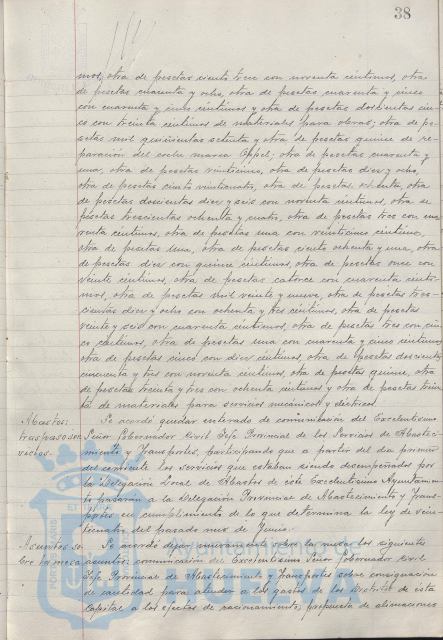 38
mos, otra de pesetas ciento trece con noventa céntimos, otra
de pesetas cuarenta y ocho, otra de pesetas cuarenta y cinco
con cuarenta y cinco céntimos y otra de pesetas doscientas cin-
co con treinta céntimos de materiales para obras; otra de pe-
setas mil quinientas setenta y otra de pesetas quince de re-
paración del coche marca Oppel; otra de pesetas cuarenta y
una, otra de pesetas veinticinco, otra de pesetas diez y ocho,
otra de pesetas cuatro otra de pesetas ochenta, otra
de pesetas doscientas diez y seis con noventa céntimos, otra de
pesetas trescientas ochenta y cuatro, otra de pesetas tres con cua-
renta céntimos, otra de pesetas una con veinticinco céntimos,
otra de pesetas una, otra de pesetas ciento ochenta y una, otra
de pesetas diez con quince céntimos, otra de pesetas once con
veinte céntimos, otra de pesetas catorce con cuarenta cénti-
mos, otra de pesetas mil veinte y nueve, otra de pesetas tres-
cientas diez y ocho con ochenta y tres céntimos, otra de pesetas
veinte y seis con cuarenta céntimos, otra de pesetas tres con cin-
co céntimos, otra de pesetas una con cuarenta y cinco céntimos
otra de pesetas cinco con diez céntimos, otra de pesetas doscientas
cincuenta y tres con noventa céntimos, otra de pesetas quince, otra
de pesetas treinta y tres con ochenta céntimos y otra de pesetas trein-
ta de materiales para servicios mecánicos y eléctricos.
Abastos: Se acordó quedar enterado de comunicación del Excelentísimo
traspaso ser- Señor Gobernador Civil Jefe Provincial de los Servicios de Abastec-
vicios. miento y Transportes, participando que a partir del día primero
del corriente los servicios que estaban siendo desempeñados por
la Delegación Local de Abastos de este Excelentísimo Ayuntamien-
to pasarán a la Delegación Provincial de Abastecimiento y Trans-
portes en cumplimiento de lo que determina la ley de vein-
ticuatro del pasado mes de Junio.
Asuntos so- Se acordó dejar nuevamente sobre la mesa los siguientes
bre la mesa asuntos: comunicación del Excelentísimo Señor Gobernador Civil
Jefe Provincial de Abastecimiento y Transportes sobre consignación
de cantidad para atender a los gastos de los Distritos de esta
Capital a los efectos de racionamiento; propuesta de alineaciones
Ayuntamiento de